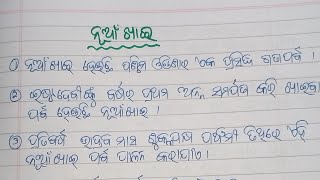 ନୂଆଁଖାଇ
① ନୂଆଁଖାଇ ହେଉଛି ପଶ୍ଚିମ ଓଡ଼ିଶାର ଏକ ପ୍ରସିଦ୍ଧ ଗଣପର୍ବ ।
② ଇଷ୍ଟଦେବୀଙ୍କୁ ବର୍ଷର ପ୍ରଥମ ଅନ୍ନ ସମର୍ପଣ କରି ଖାଇବା
ପର୍ବ ହେଉଛି ନୂଆଁଖାଇ ।
③ ପ୍ରତିବର୍ଷ ଭାଦ୍ରବ ମାସ ଶୁକ୍ଳପକ୍ଷ ପଞ୍ଚମୀ ତିଥିରେ ଏହି
ନୂଆଁଖାଇ ପର୍ବ ପାଳନ କରାଯାଏ ।